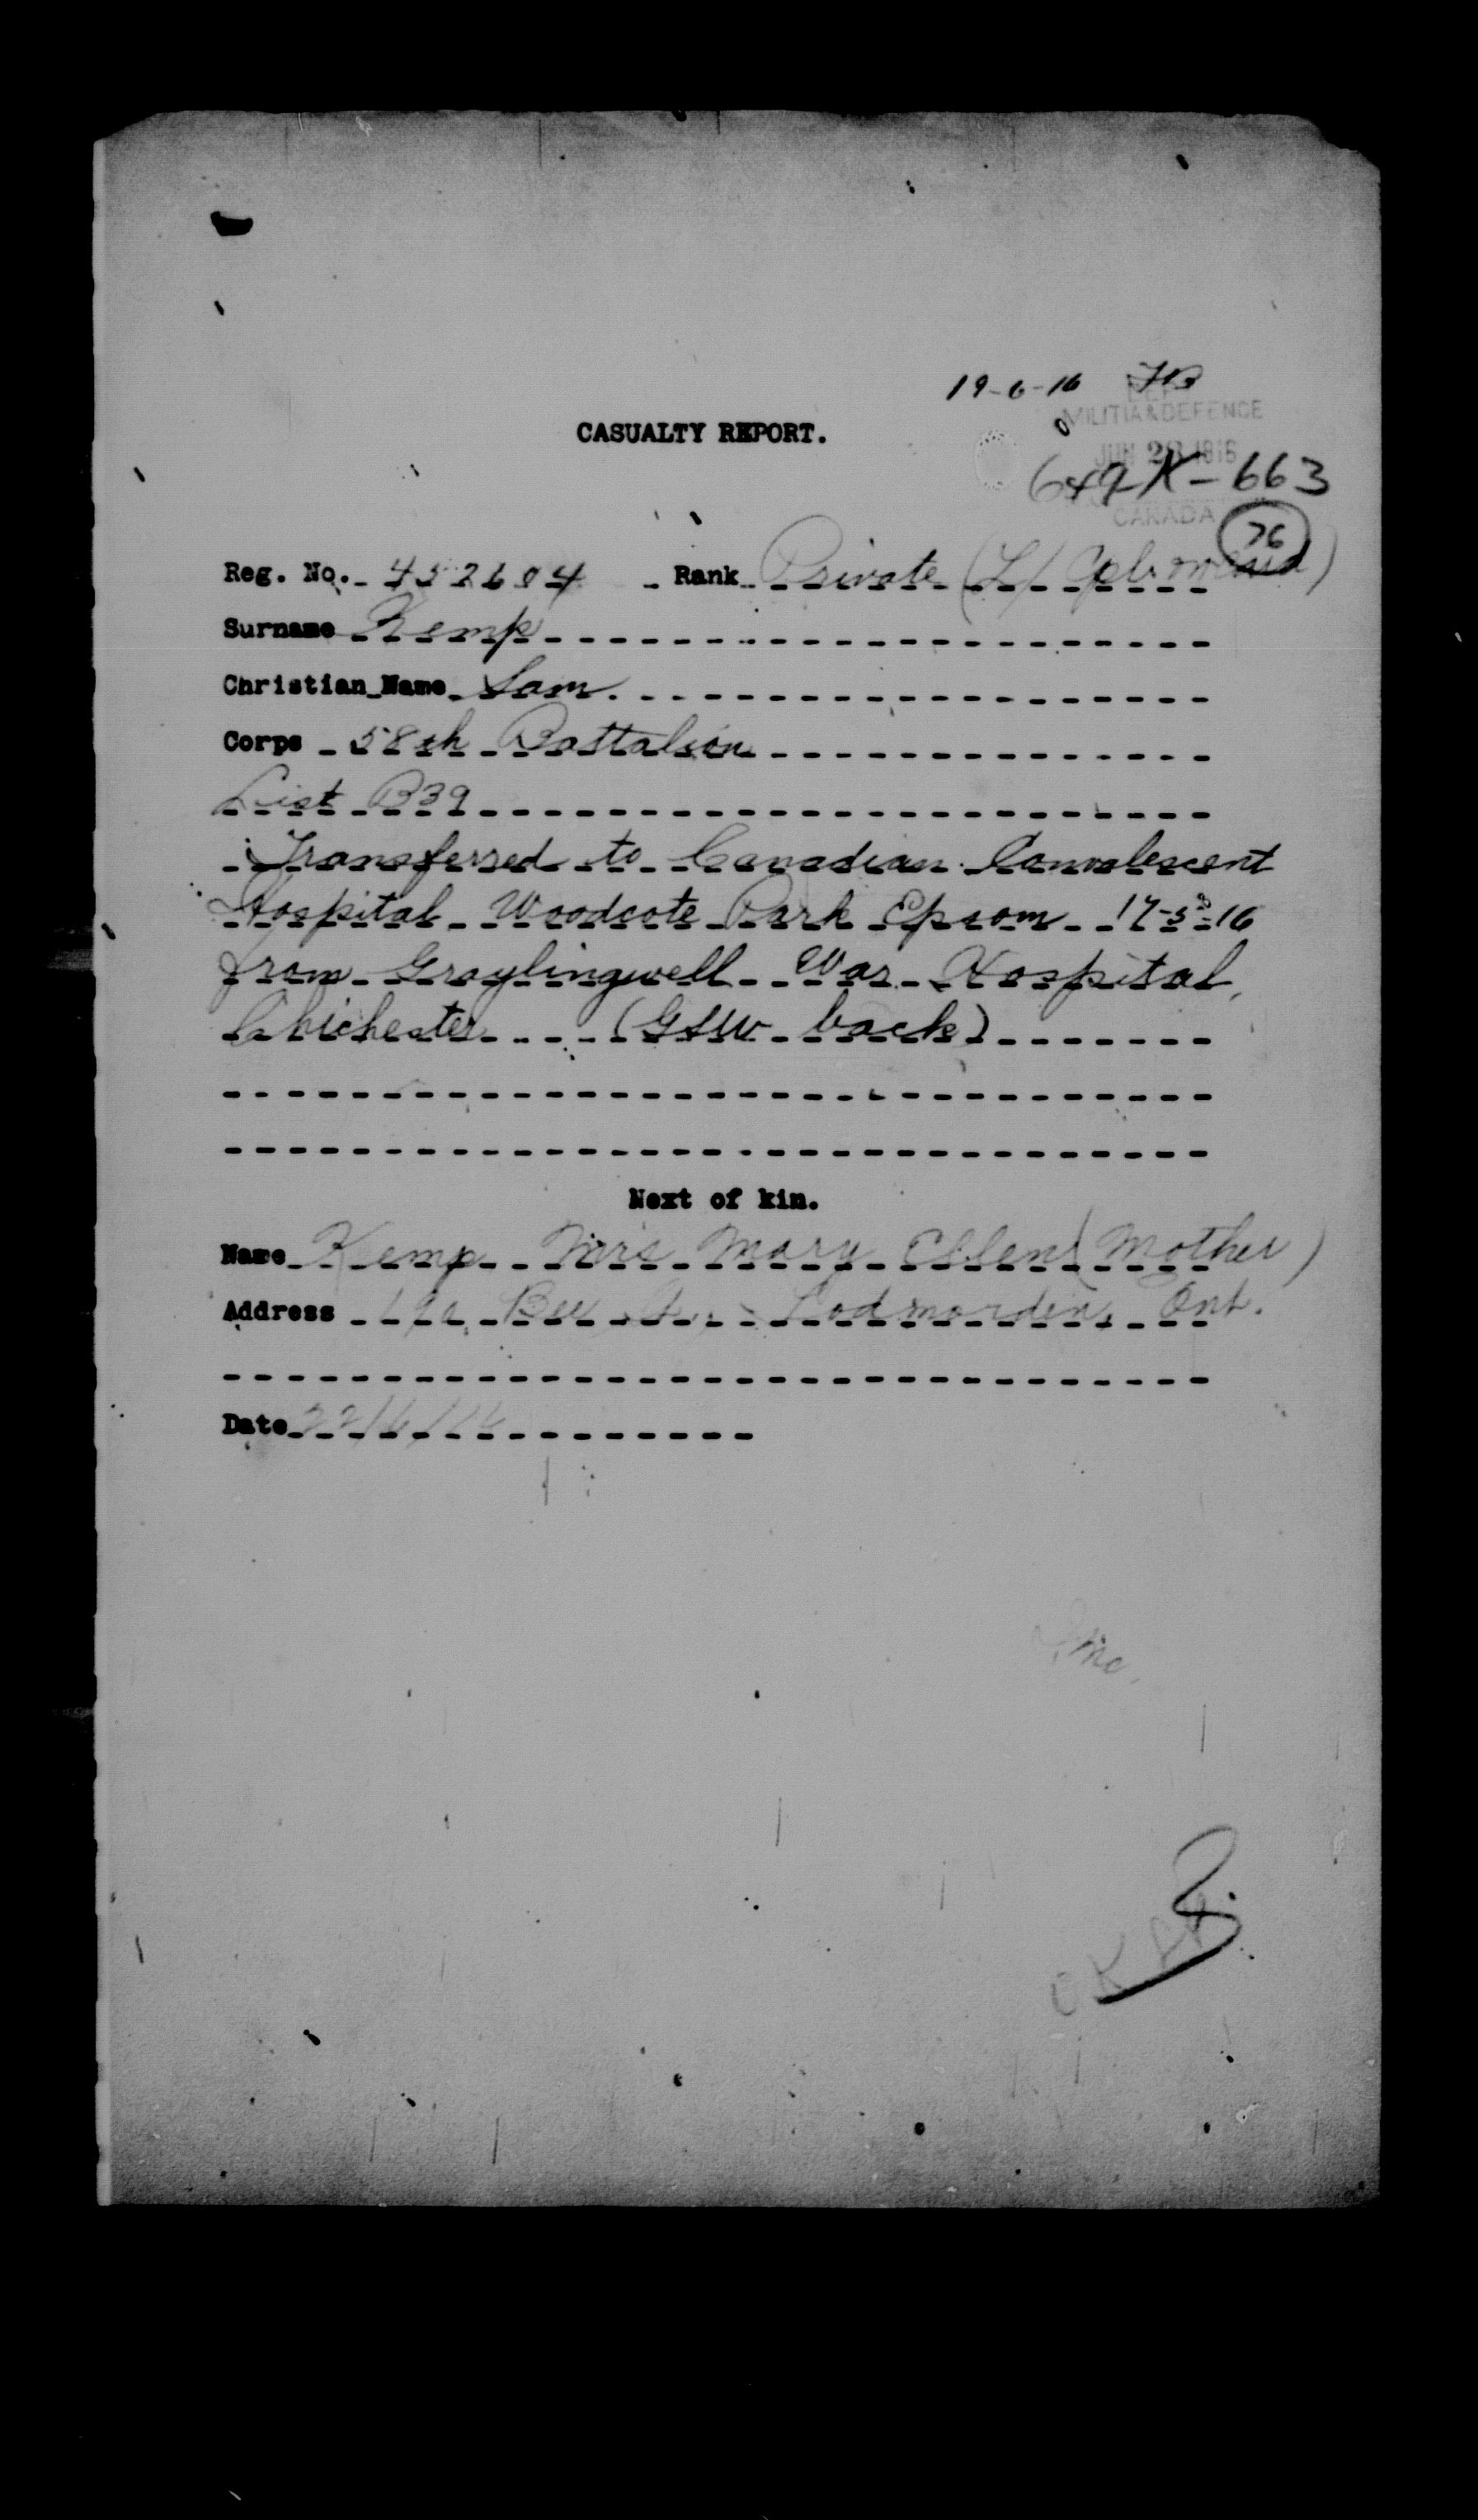 19-6-16 JB
MILITIA & DEFENCE
CASUALTY REPORT.
JUN 28 1916
649-K-663
CANADA
76
Reg. No. 452604 Rank Private (L/Cpl. on card)
Surname Kemp
Christian Name Sam.
Corps 58th Battalion
List B39
Transferred to Canadian Convalescent
Hospital Woodcote Park Epsom 17-5-16
from Graylingwell War Hospital,
Chichester (GSW back)
Next of kin.
Name Kemp Mrs Mary Ellen (Mother)
Address Bee Todmorden, Ont.
Date 22/6/16
OK